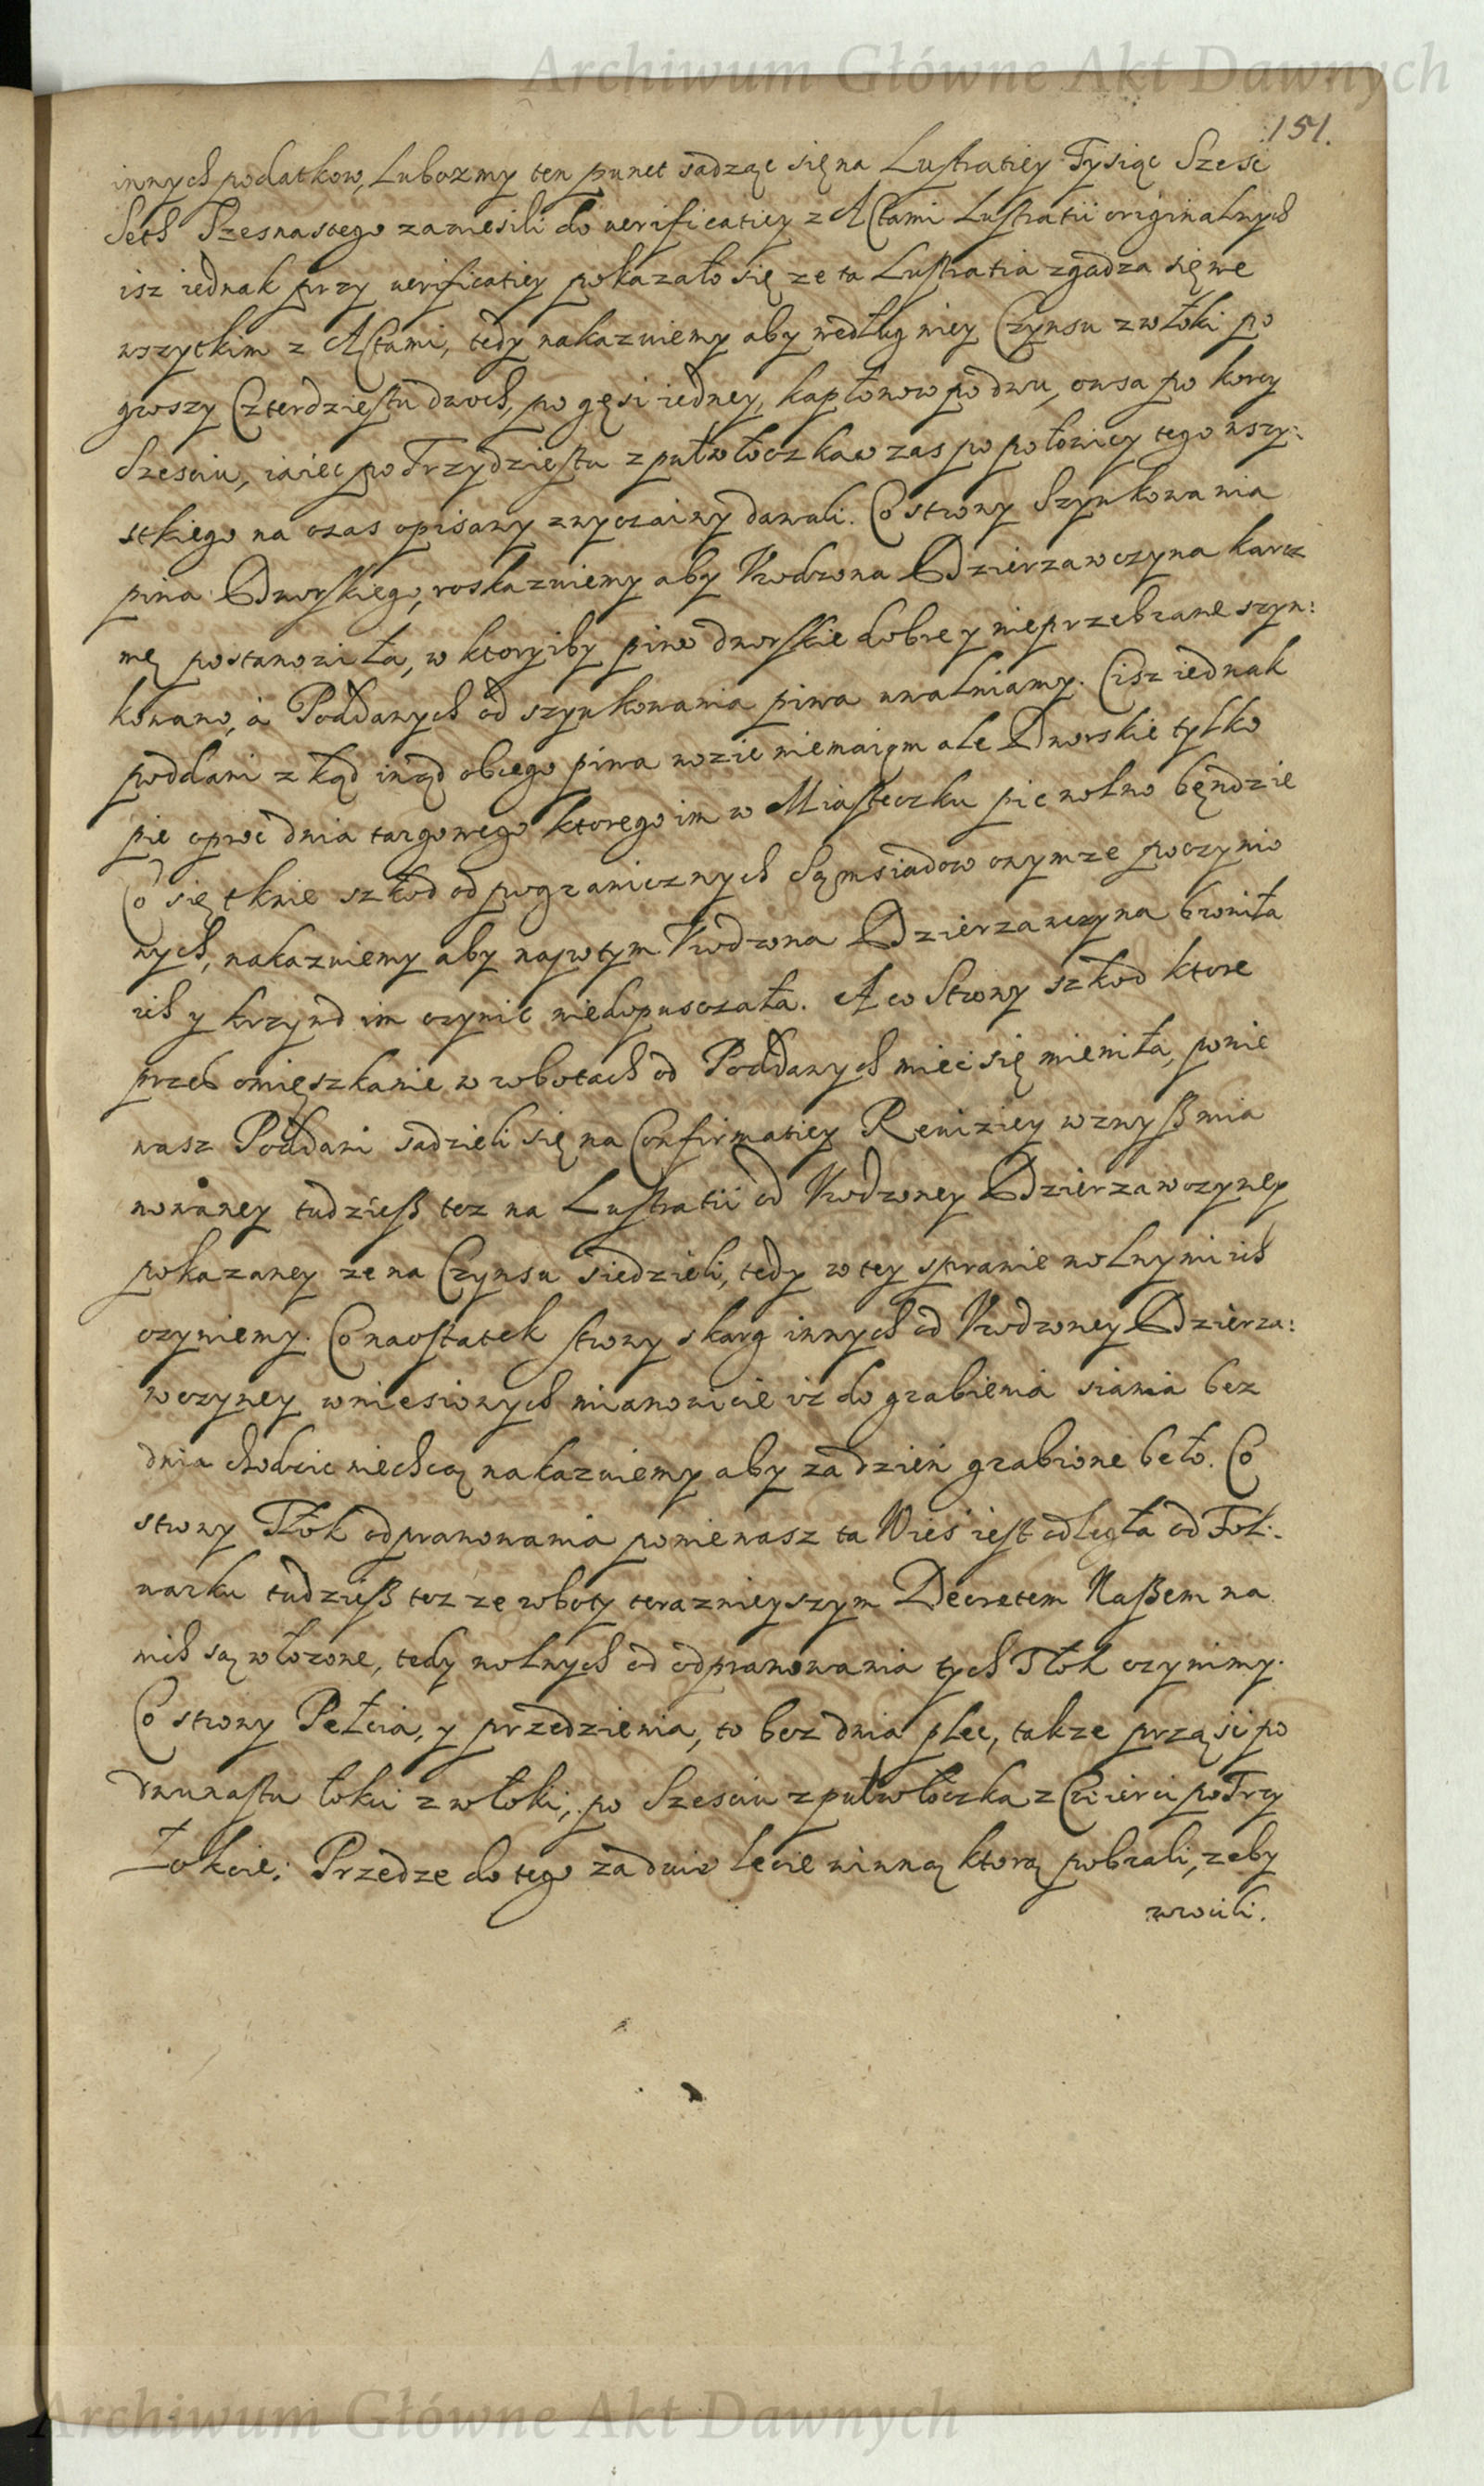 Archiwum Główne Akt Dawnych
151.
innych podatkow, Lubozmy ten punct sadząc się na Lustratiey Tysiąc Szesc
Seth Szesnastego zawiesili do verificatiey z Actami Lustratii originalnych
isz iednak przy verificatiey pokazało się ze ta Lustratia zgadza się we
wszytkim z Actami, tedy nakazuiemy aby według niey Czynsu z włoki po
groszy Czterdziestu dwoch, po gęsi iedney, kapłonow po dwu, owsa po korcy
Szesciu, iaiec po Trzydziestu z pułwłoczkaw zas po połowicy tego wszy:
stkiego na czas opisany zwyczainy dawali. Co strony Szynkowania
piwa Dworskiego, roskazuiemy aby Vrodzona Dzierzawczyna karcz
mę postanowiła, w ktoryiby piwo dworskie dobre y nieprzebrane szyn:
kowano, a Poddanych od szynkowania piwa uwalniamy. Cisz iednak
poddani z kąd inąd obcego piwa wozic niemaiąm ale Dworskie tylko
pic oproc dnia targowego ktorego im w Miasteczku pic wolno będzie
Co się tknie szkod od pogranicznych Sąmsiadow onymze poczynio
nych, nakazuiemy aby napotym Vrodzona Dzierzawczyna broniła
ich y krzywd im czynic niedopusczała. A co Strony szkod ktore
przes omieszkanie w robotach od Poddanych miec się mieniła, ponie
wasz Poddani sadzieli się na Confirmatiey Rewiziey wzwyß mia
nowaney tudzieß tez na Lustratii od Vrodzoney Dzierzawczyney
pokazaney ze na Czynsu siedzieli, tedy w tey sprawie wolnymi ich
czyniemy. Co naostatek strony skarg innych od Vrodzoney Dzierza:
wczyney wniesionych mianowicie iz do grabienia siania bez
dnia chodzic niechcą nakazuiemy aby za dzien grabione beło. Co
strony Tłok odprawowania poniewasz ta Wies iest odległa od Fol:
warku tudzieß tez ze roboty teraznieyszym Decretem Naßem na
nich są włozone, tedy wolnych od odprawowania tych Tłok czynimy.
Co strony Pełcia, y przedzienia, to bez dnia plec, takze prząsc po
dwunastu łokci z włoki, po Szesciu z pułwłoczka z Cwierci po Trzy
Łokcie: Przedze do tego za dwie lecie winną ktorą pobrali, zeby
wrocili.
Archiwum Główne Akt Dawnych